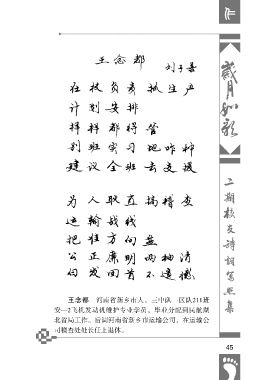 作
岁月如歌
王念都
刘子善
在校负责抓生产
计划安排
样样都得管
到班实习地咋种
建议全班去支援
为人耿直搞精变
运输战线
把准方向盘
公正廉明两袖清
向发回首不遗憾
二期校友诗词写照集
王念都 河南省新乡市人。三中队 区队211班
安—2飞机发动机维护专业学员。毕业分配到民航湖
北省局工作。后调河南省新乡市运输公司,在运输公
司稽查处处长任上退休。
45